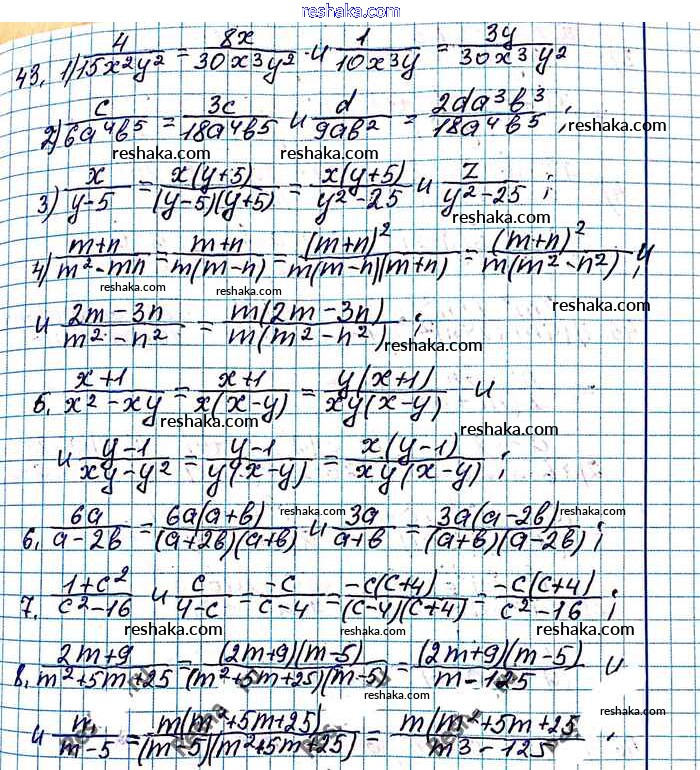 reshaka.com
43. 1) 4/15x²y² = 8x/30x³y² и 1/10x³y = 3y/30x³y²
2) c/6a⁴b⁵ = 3c/18a⁴b⁵ и d/9ab² = 2da³b³/18a⁴b⁵ ;
reshaka.com reshaka.com reshaka.com
3) x/y-5 = x(y+5)/(y-5)(y+5) = x(y+5)/y²-25 и z/y²-25 ;
reshaka.com reshaka.com
4) m+n/m²-mn = m+n/m(m-n) = (m+n)²/m(m-n)(m+n) = (m+n)²/m(m²-n²) , и
reshaka.com reshaka.com
и 2m-3n/m²-n² = m(2m-3n)/m(m²-n²) ;
reshaka.com
5. x+1/x²-xy = x+1/x(x-y) = y(x+1)/xy(x-y) и
reshaka.com reshaka.com
и y-1/xy-y² = y-1/y(x-y) = x(y-1)/xy(x-y) ;
reshaka.com
6. 6a/a-2b = 6a(a+b)/(a+2b)(a+b) и 3a/a+b = 3a(a-2b)/(a+b)(a-2b) ;
reshaka.com reshaka.com reshaka.com
7. 1+c²/c²-16 и c/4-c = -c/c-4 = -c(c+4)/(c-4)(c+4) = -c(c+4)/c²-16 ;
reshaka.com reshaka.com reshaka.com
8. 2m+9/m²+5m+25 = (2m+9)(m-5)/(m²+5m+25)(m-5) = (2m+9)(m-5)/m-125 и
reshaka.com reshaka.com
и m/m-5 = m(m²+5m+25)/(m-5)(m²+5m+25) = m(m²+5m+25/m3-125 .
reshaka.com